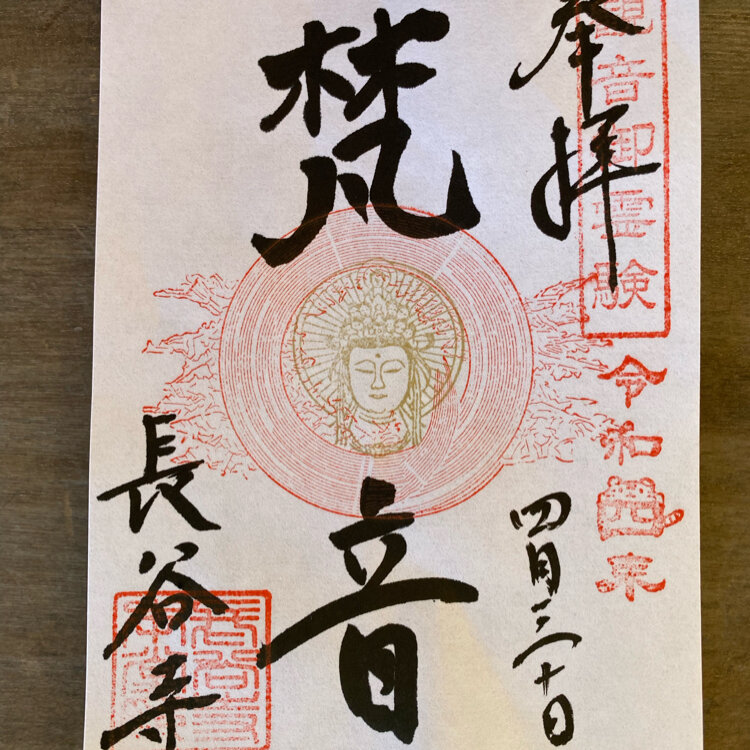 観音御霊験
奉拝
令和四年
四月三十日
梵音
長谷寺